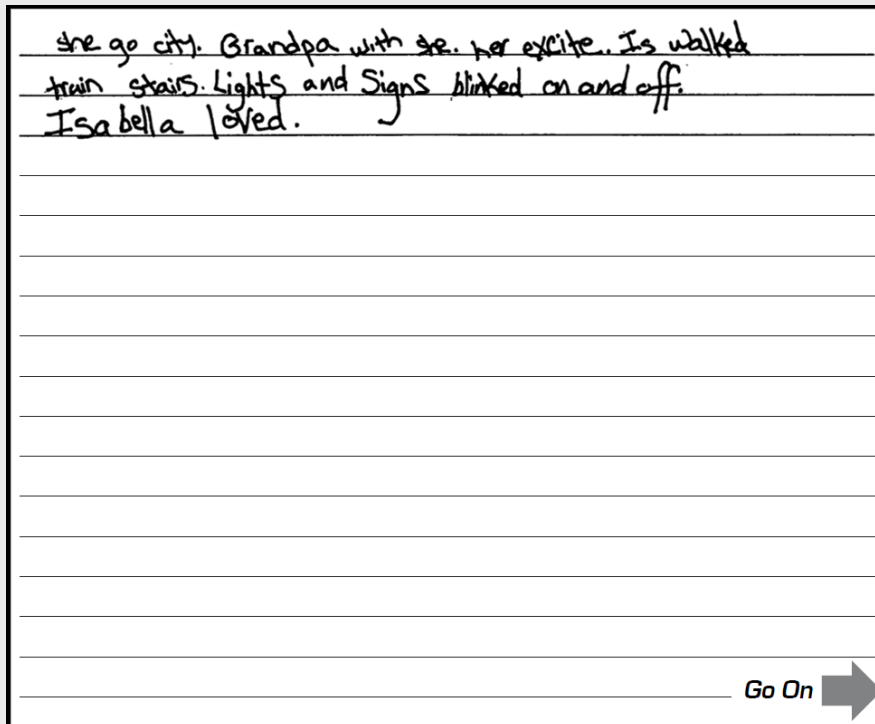 she go city. Grandpa with she. her excite. Is walked
train stairs. Lights and Signs blinked on and off.
Isabella loved.
Go On